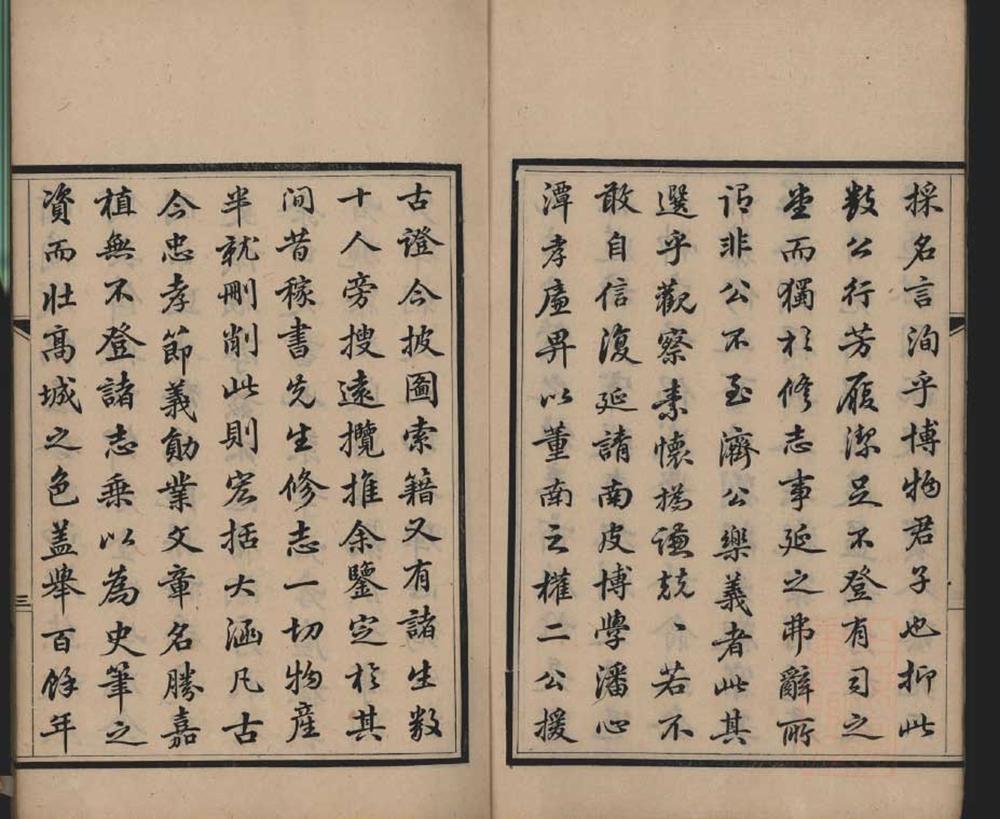 採名言洵乎博物君子也抑此
數公行芳履潔足不登有司之
堂而獨於修志事延之弗辭所
謂非公不至濟公樂義者此其
選乎觀察素懷撝謙兢、若不
敢自信復延請南皮博學潘心
潭孝廉畀以董南之權二公援
古證今披圖索籍又有諸生數
十人旁搜遠攬推余鑒定於其
間昔稼書先生修志一切物產
半就刪削此則宏括大涵凡古
今忠孝節義勛業文章名勝嘉
植無不登諸志乘以為史筆之
資而壯高城之色蓋舉百餘年
三